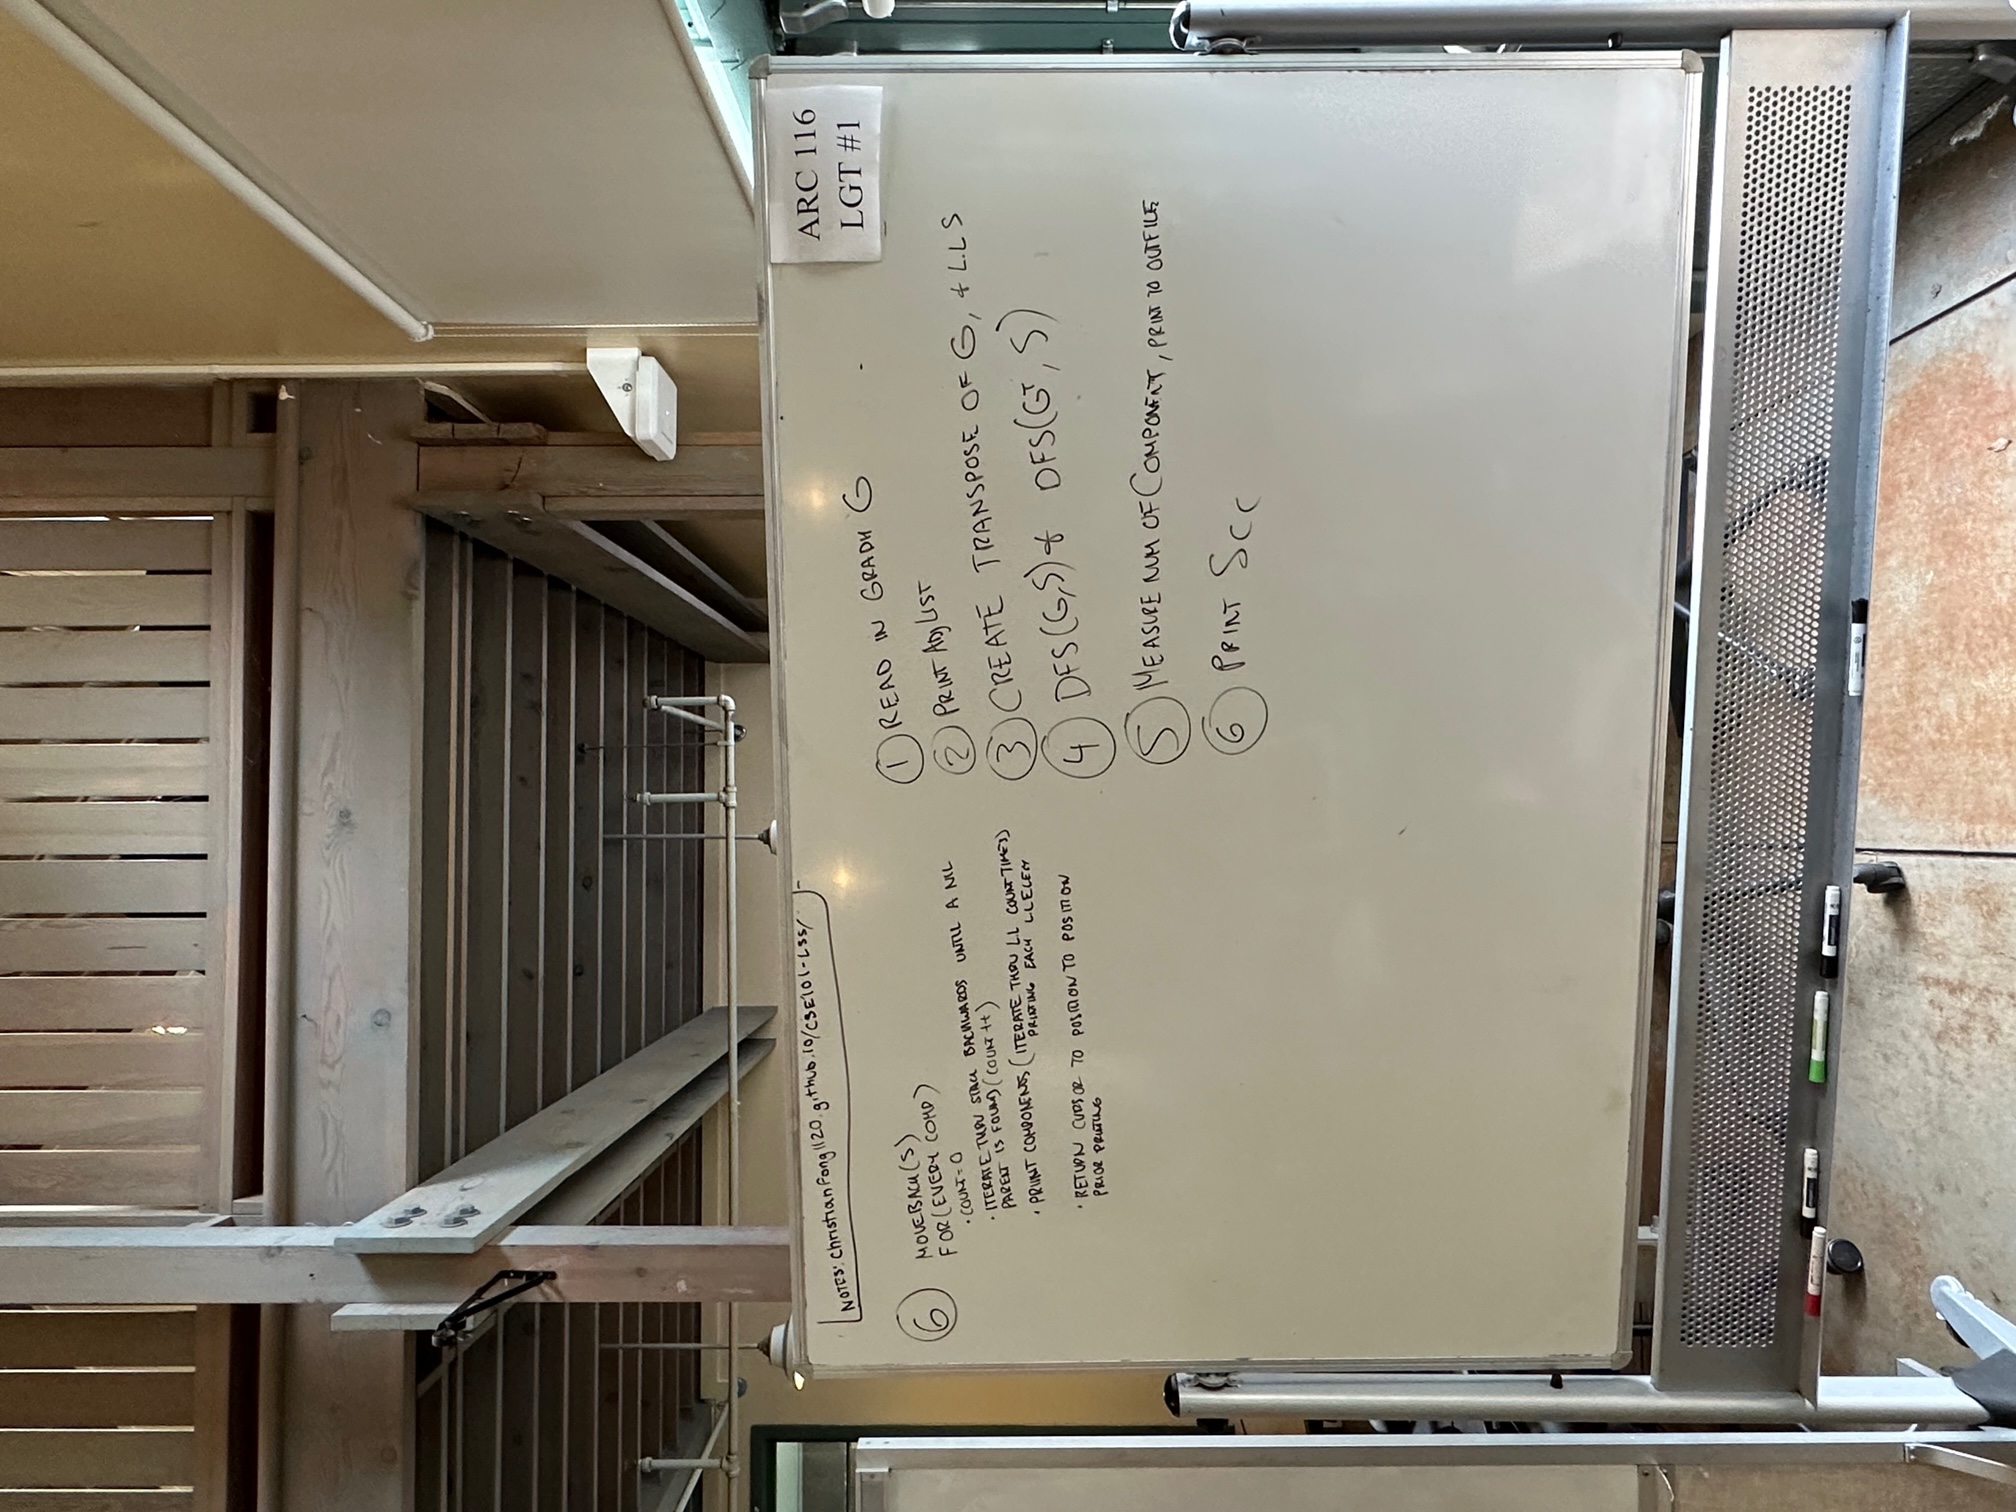 NOTES: christianfong1120.github.io/CSE101-LSS/
ARC 116
LGT #1
6
MOVEBACK(S)
FOR(EVERY COMP)
• COUNT = 0
• ITERATE THRU STACK BACKWARDS UNTIL A NIL
PARENT IS FOUND (COUNT ++)
• PRINT COMPONENTS (ITERATE THRU LL COUNT TIMES)
PRINTING EACH LL ELEM
• RETURN CURSOR TO POSITION TO POSITION
PRIOR PRINTING
1 READ IN GRAPH G
2 PRINT ADJ LIST
3 CREATE TRANSPOSE OF G, & L.L S
4 DFS(G,S) & DFS(GT, S)
5 MEASURE NUM OF COMPONENT, PRINT TO OUTFILE
6 PRINT SCC